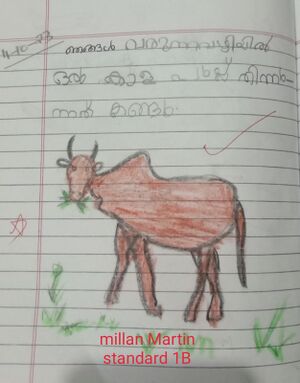 ഞങ്ങൾ വരുന്നവഴിയിൽ
ഒരു കാള പുല്ല് തിന്നു
ന്നത് കണ്ടു.
millan Martin
standard 1B